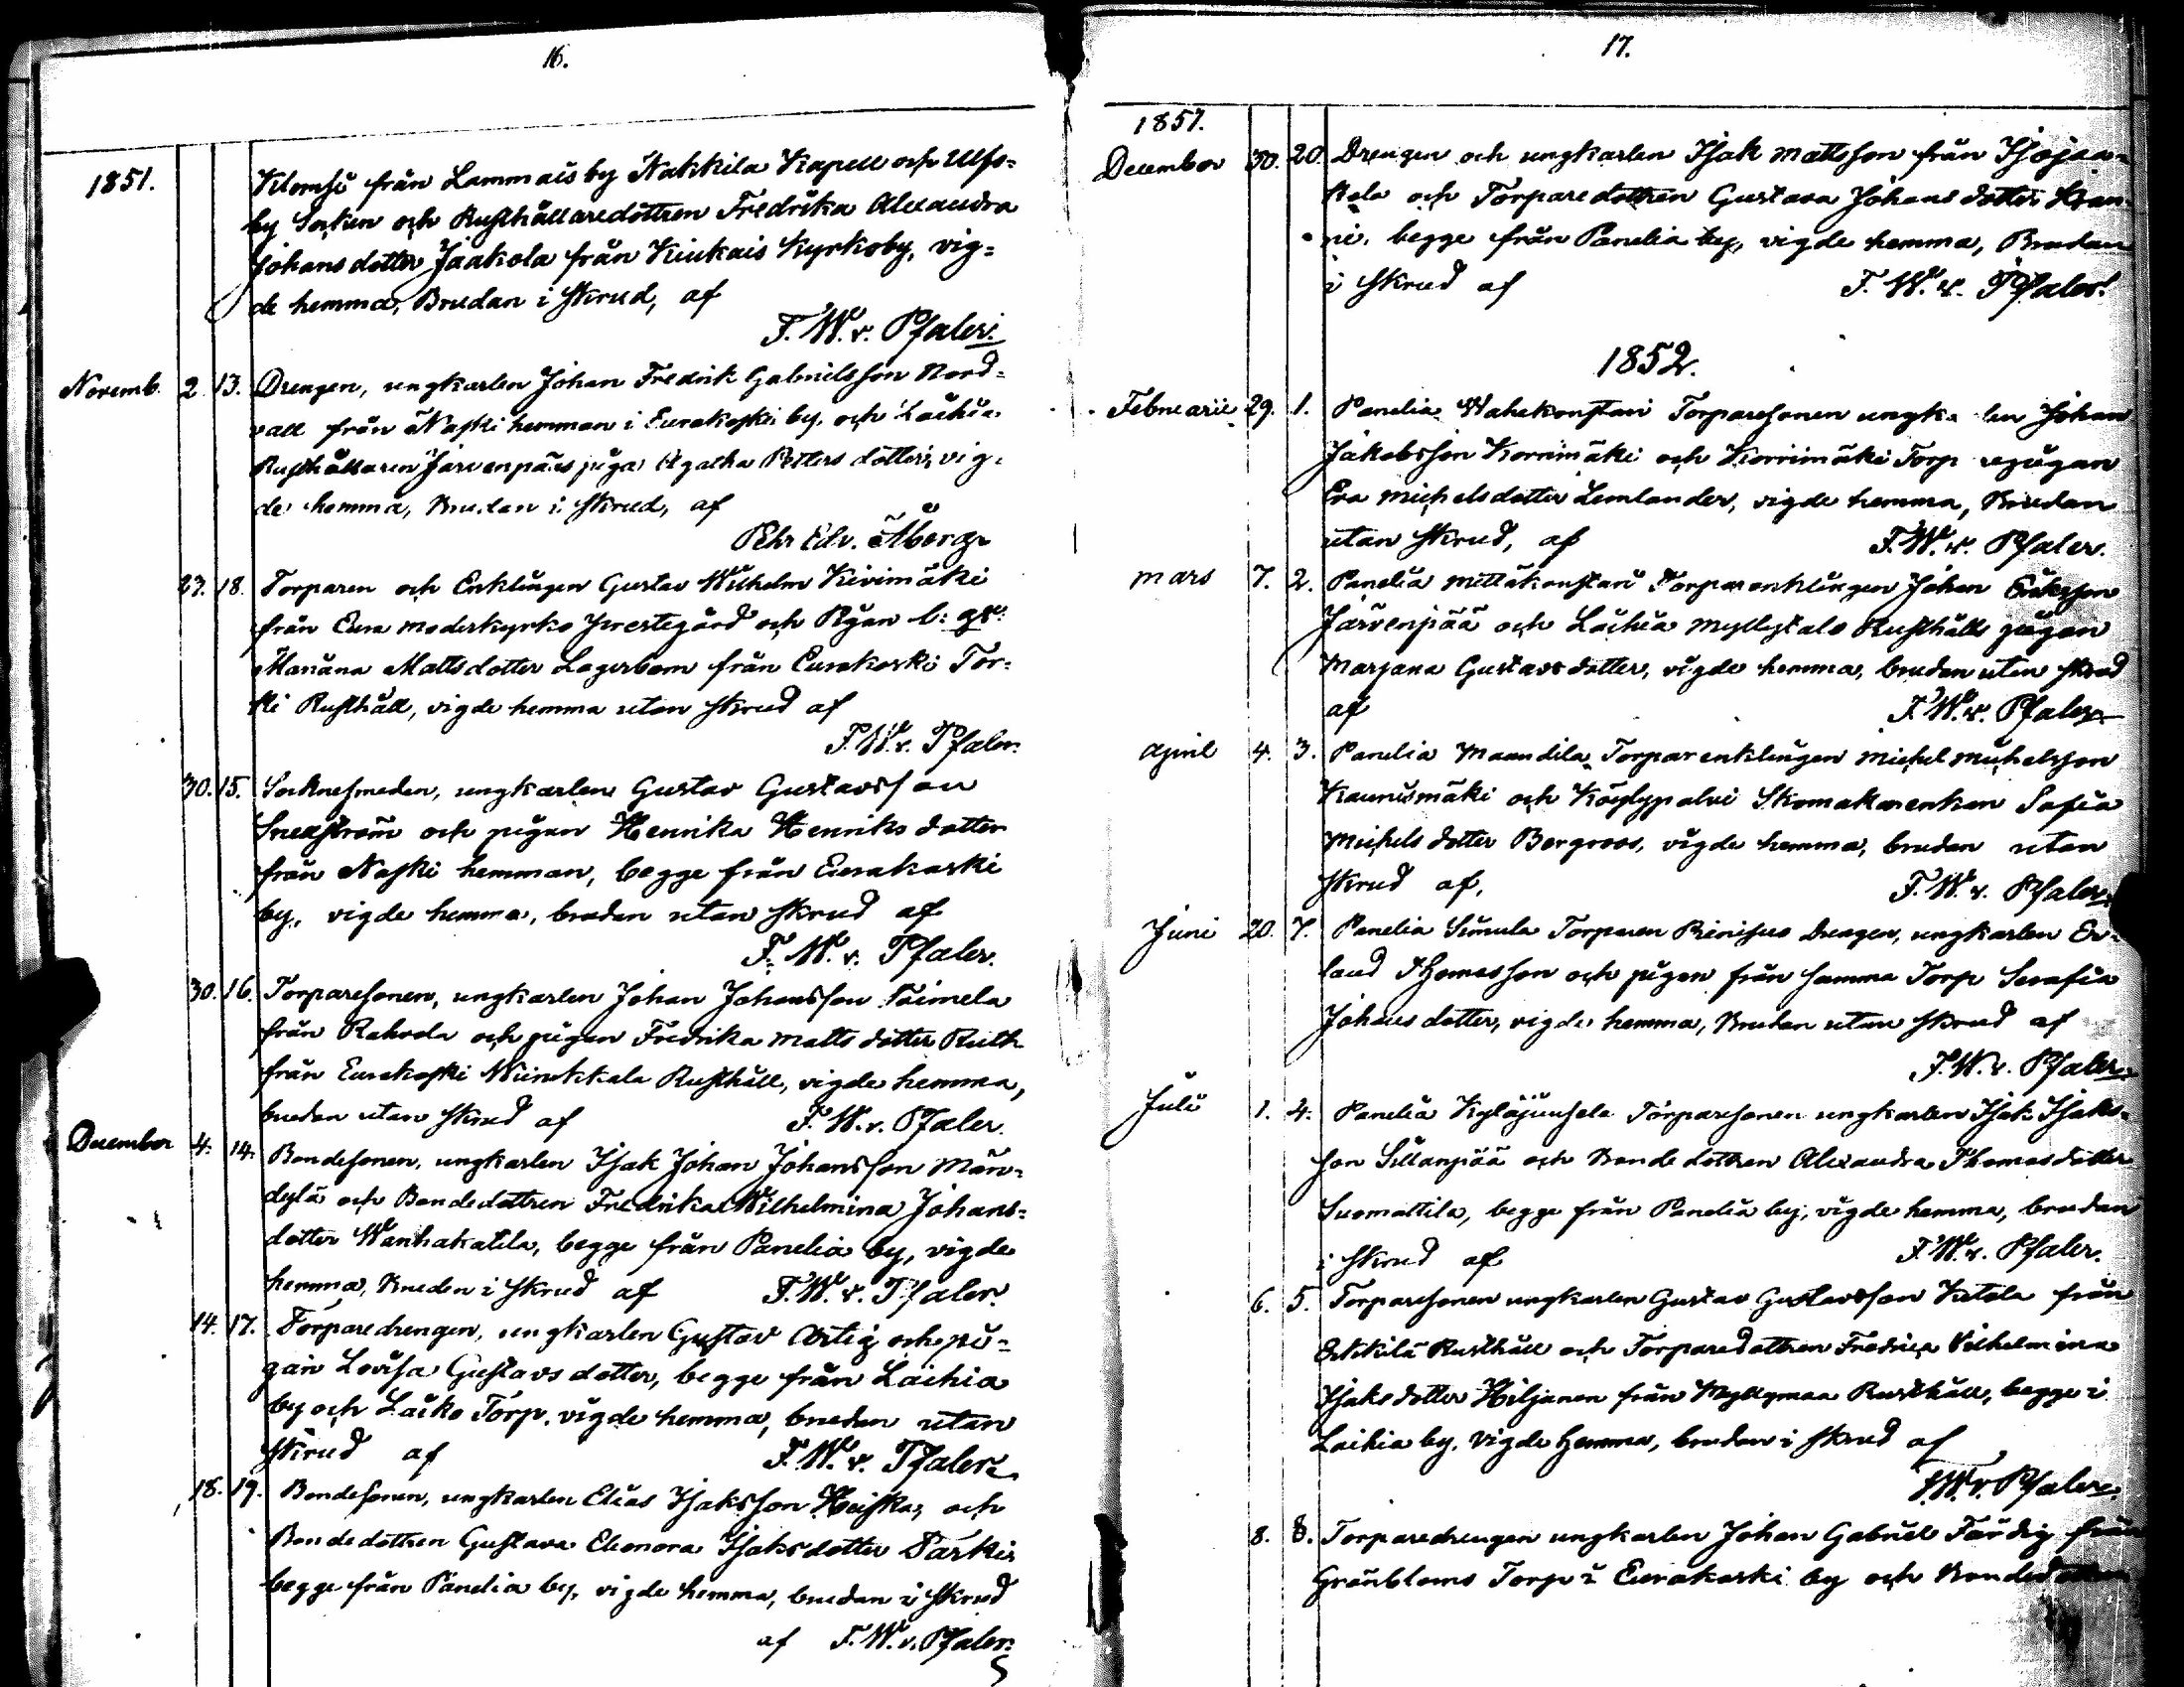 16.
1851.
Klomsi från Lammais by Nakkila Kapell och Ulfs-
by Socken och Rusthållaredottren Fredrika Alexandra
Johansdotter Jaakola från Kiukais Kyrkoby, vig-
de hemma, Brudan i skrud, af
F. W. v. Pfaler.
Novemb. 2. 13. Drengen, ungkarlen Johan Fredrik Gabrielsson Nord-
vall från Naski hemman i Eurakoski by, och Laihia
Rusthållaren Järvenpääs piga Agatha Petters dotter, vig-
de hemma, Brudan i skrud, af
Pehr Edv. Åberg
23. 18. Torparen och Enklingen Gustav Wilhelm Kivimäki
från Eura moderkyrko prestegård och Pigan
Mariana Mattsdotter Lagerbom från Eurakoski Tor-
ki Rusthåll, vigde hemma utan skrud af
F. W. v. Pfaler.
30. 15. Socknesmeden, ungkarlen Gustav Gustavsson
och pigan Henrika Henriksdotter
från Naski hemman, begge från Eurakoski
by, vigde hemma, brudan utan skrud af
F. W. v. Pfaler.
30. 16. Torparesonen, ungkarlen Johan Johansson Taimela
från Rahvola och pigan Fredrika Mattsdotter Ruth
från Eurakoski Wiinikkala Rusthåll, vigde hemma,
brudan utan skrud af F. W. v. Pfaler.
December 4. 14. Bondesonen, ungkarlen Isak Johan Johansson Män-
dylä och Bondedottren Fredrika Wilhelmina Johans-
dotter Wanhakatila, begge från Panelia by, vigde
hemma, Brudan i skrud af F. W. v. Pfaler.
14. 17. Torparedrengen, ungkarlen Gustav Artig och pi-
gan Lovisa Gustavsdotter, begge från Laihia
by och Laiko Torp, vigde hemma, brudan utan
skrud af F. W. v. Pfaler.
18. 19. Bondesonen, ungkarlen Elias Isaksson Heiska, och
Bondedottren Gustava Eleonora Isaksdotter Parki
begge från Panelia by, vigde hemma, brudan i skrud
af F. W. v. Pfaler.
17.
1851.
December 30. 20. Drengen och ungkarlen Isak Mattsson från Isojaa-
kola och Torparedottren Gustava Johansdotter
begge från Panelia by, vigde hemma, Brudan
i skrud af F. W. v. Pfaler.
1852.
Februarii 29. 1. Panelia Wahakonstari Torparesonen Johan
Jakobsson Korrimäki och Korrimäki Torp
Eva Michelsdotter Lemlander, vigde hemma, Brudan
utan skrud, af F. W. v. Pfaler.
mars 7. 2. Panelia Melläkonstari Torparenklingen Johan Eriksson
Järvenpää och Laihia Myllystalo Rusthålls pigan
Marjana Gustavsdotter, vigde hemma, brudan utan skrud
af F. W. v. Pfaler.
april 4. 3. Panelia Maandila Torparenklingen Michel Michelsson
Kaunismäki och Köylypolvi Skomakarenkan Sofia
Michelsdotter Bergroos, vigde hemma, brudan utan
skrud af, F. W. v. Pfaler.
Juni 20. 7. Panelia Simula Torparen Drengen, ungkarlen Er-
land Thomasson och pigan från samma Torp Serafia
Johansdotter, vigde hemma, Brudan utan skrud af
F. W. v. Pfaler.
Juli 1. 4. Panelia Kyläjunsela Torparesonen ungkarlen Isak Isaks-
son Sillanpää och Bondedottren Alexandra Thomasdotter
Suomattila, begge från Panelia by, vigde hemma, brudan
i skrud af F. W. v. Pfaler.
6. 5. Torparesonen ungkarlen Gustav Gustavsson Ketola från
Rusthåll och Torparedottren Fredrica Vilhelmina
Isaksdotter Hiljanen från Myllymaa Rusthåll, begge i
Laihia by, vigde hemma, brudan i skrud af
F. W. v. Pfaler.
8. 8. Torparedrengen ungkarlen Johan Gabriel Färdig från
Grönbloms Torp i Eurakoski by och Bondedottren